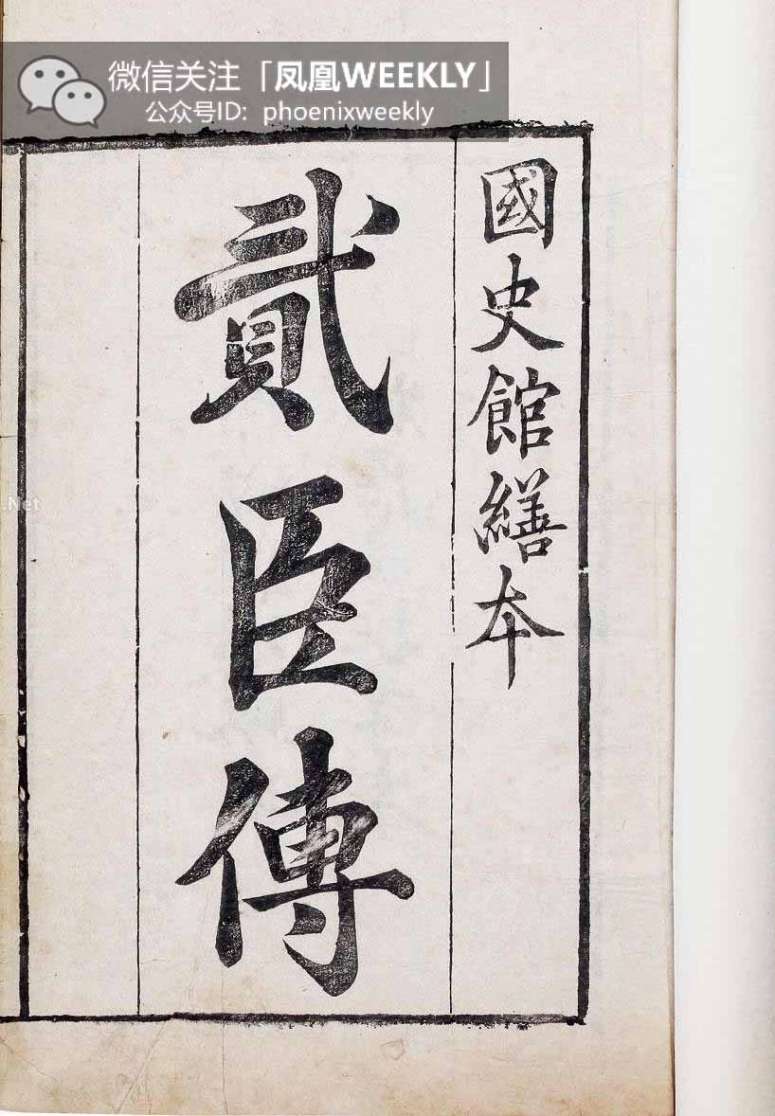 微信关注「凤凰WEEKLY」
公众号ID：phoenixweekly
國史館繕本
貳臣傳
.Net